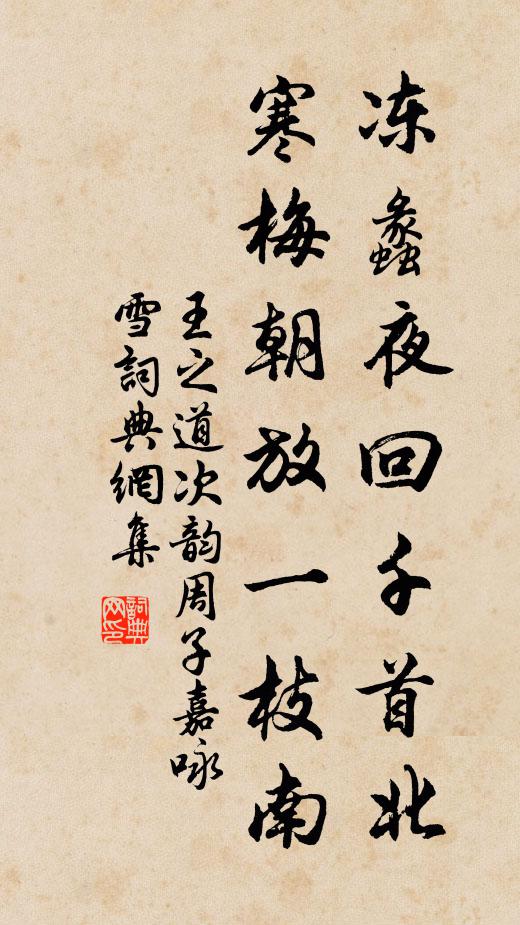 冻蠡夜回千首北
寒梅朝放一枝南
王之道次韵周子嘉咏
雪詞典網集
詞典网印